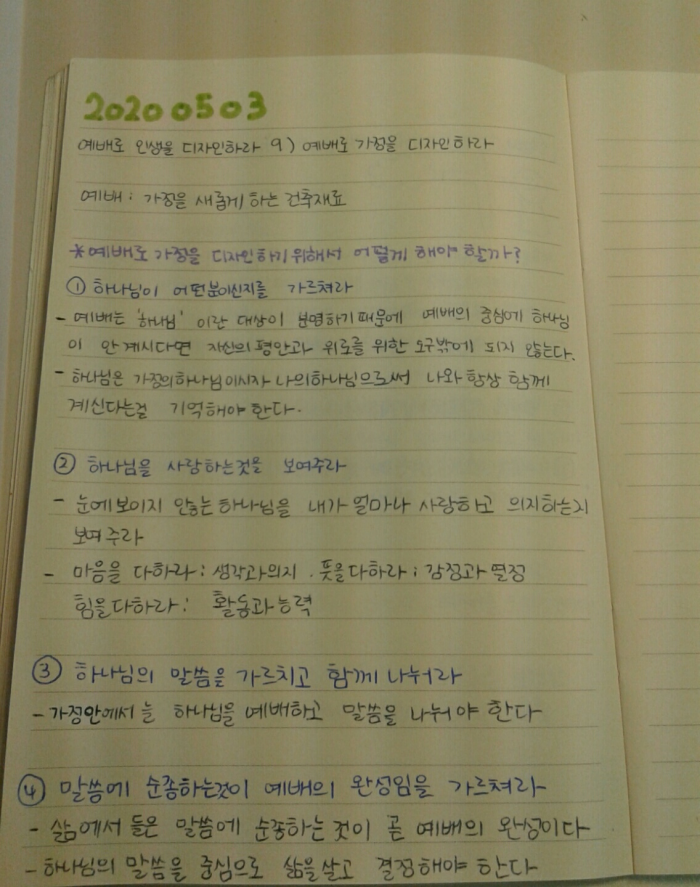 20200503
예배로 인생을 디자인하라 9) 예배로 가정을 디자인하라
예배 : 가정을 새롭게 하는 건축재료
*예배로 가정을 디자인하기위해서 어떻게 해야 할까?
① 하나님이 어떤분이신지를 가르쳐라
- 예배는 '하나님' 이란 대상이 분명하기때문에 예배의 중심에 하나님
이 안계시다면 자신의 평안과 위로를 위한 요구밖에 되지 않는다.
- 하나님은 가정의하나님이시자 나의하나님으로써 나와 항상 함께
계신다는걸 기억해야한다.
② 하나님을 사랑하는것을 보여주라
- 눈에보이지 않는 하나님을 내가 얼마나 사랑하고 의지하는지
보여주라
- 마음을 다하라 ; 생각과의지 . 뜻을다하라 ; 감정과 열정
힘을다하라 ; 활동과능력
③ 하나님의 말씀을 가르치고 함께 나눠라
- 가정안에서 늘 하나님을 예배하고 말씀을 나눠야 한다
④ 말씀에 순종하는것이 예배의 완성임을 가르쳐라
- 삶에서 들은 말씀에 순종하는 것이 곧 예배의 완성이다
- 하나님의 말씀을 중심으로 삶을살고 결정해야 한다